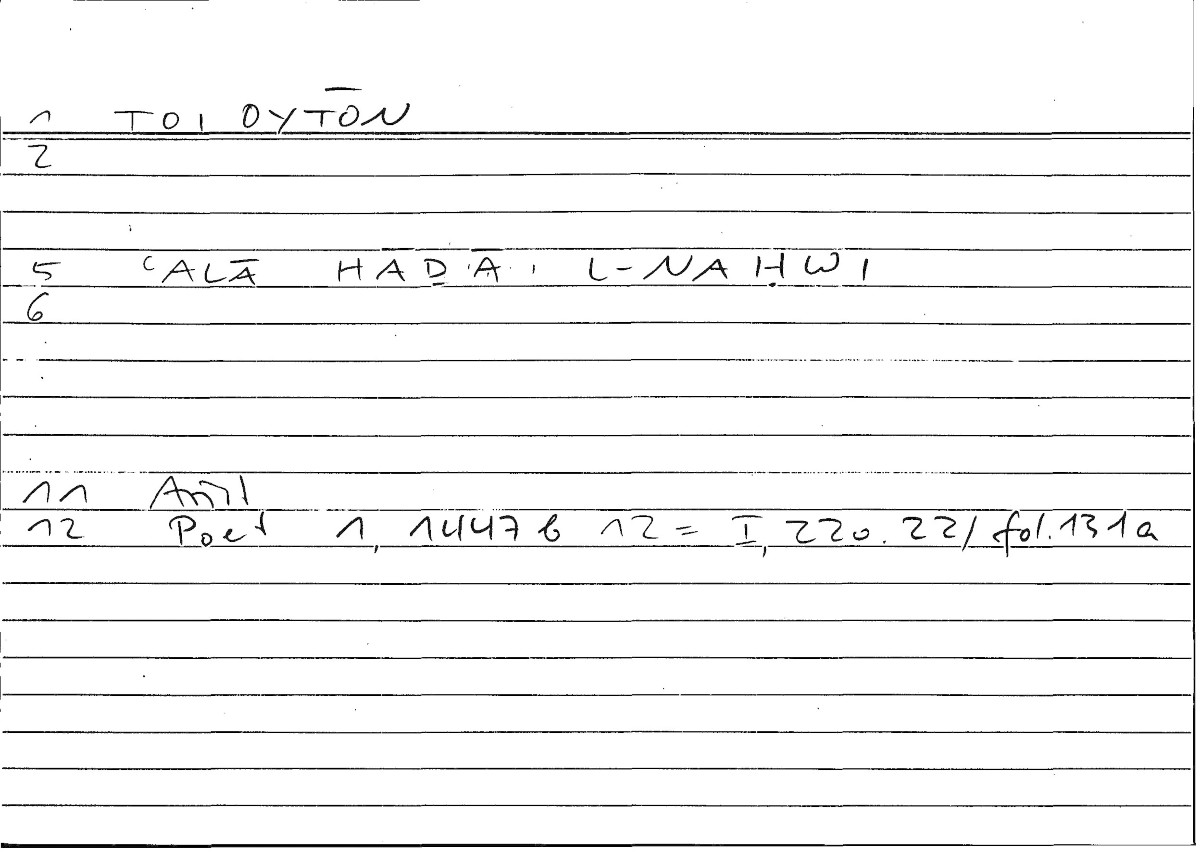 1 TOIOYTŌN
2
5 ʿALĀ HĀḎĀ L-NAḤWI
6
11 Arist
12 Poet 1, 1447b 12 = I, 220.22/ fol.131a